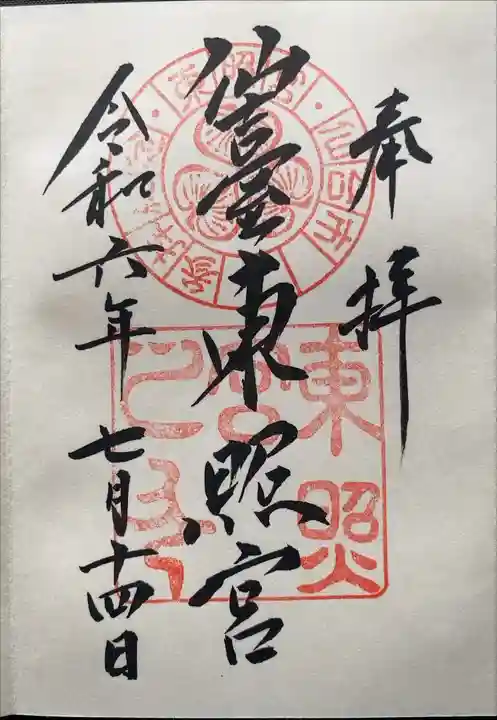 奉拝
仙臺東照宮
令和六年七月十四日
東照宮